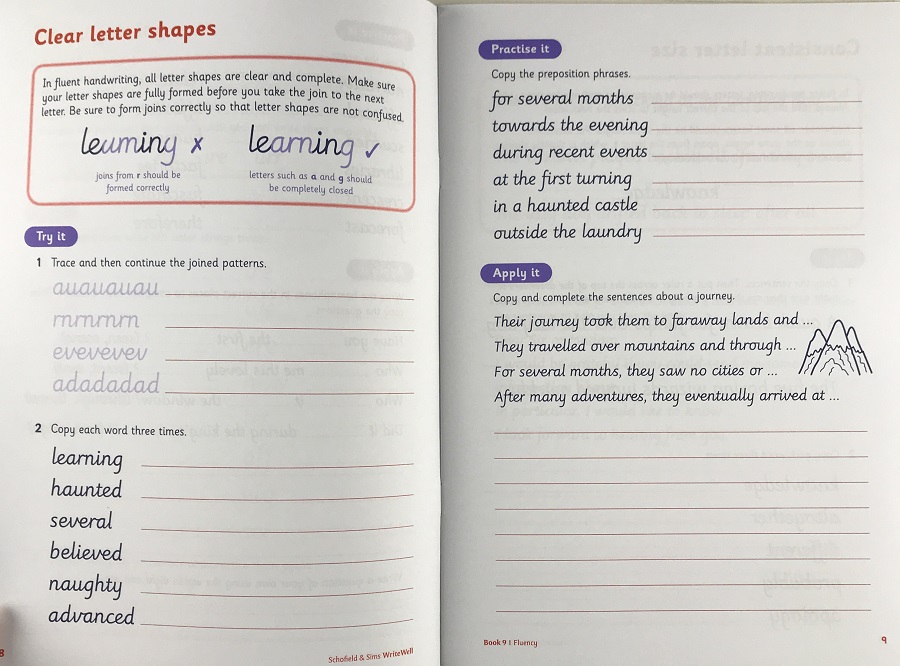 Clear letter shapes
In fluent handwriting, all letter shapes are clear and complete. Make sure
your letter shapes are fully formed before you take the join to the next
letter. Be sure to form joins correctly so that letter shapes are not confused.
leuming x learning ✓
joins from r should be
formed correctly
letters such as a and g should
be completely closed
Try it
1 Trace and then continue the joined patterns.
auauauau
rnrnrnrn
evevevev
adadadad
2 Copy each word three times.
learning
haunted
several
believed
naughty
advanced
8
Schofield & Sims WriteWell
Practise it
Copy the preposition phrases.
for several months
towards the evening
during recent events
at the first turning
in a haunted castle
outside the laundry
Apply it
Copy and complete the sentences about a journey.
Their journey took them to faraway lands and ...
They travelled over mountains and through ...
For several months, they saw no cities or ...
After many adventures, they eventually arrived at ...
Book 9 | Fluency
9